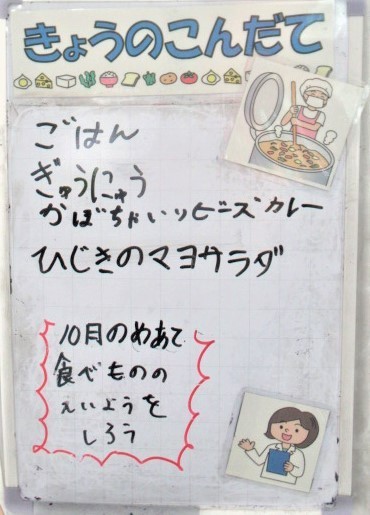 きょうのこんだて
ごはん
ぎゅうにゅう
かぼちゃいりビーンズカレー
ひじきのマヨサラダ
10月のめあて
食べものの
えいようを
しろう